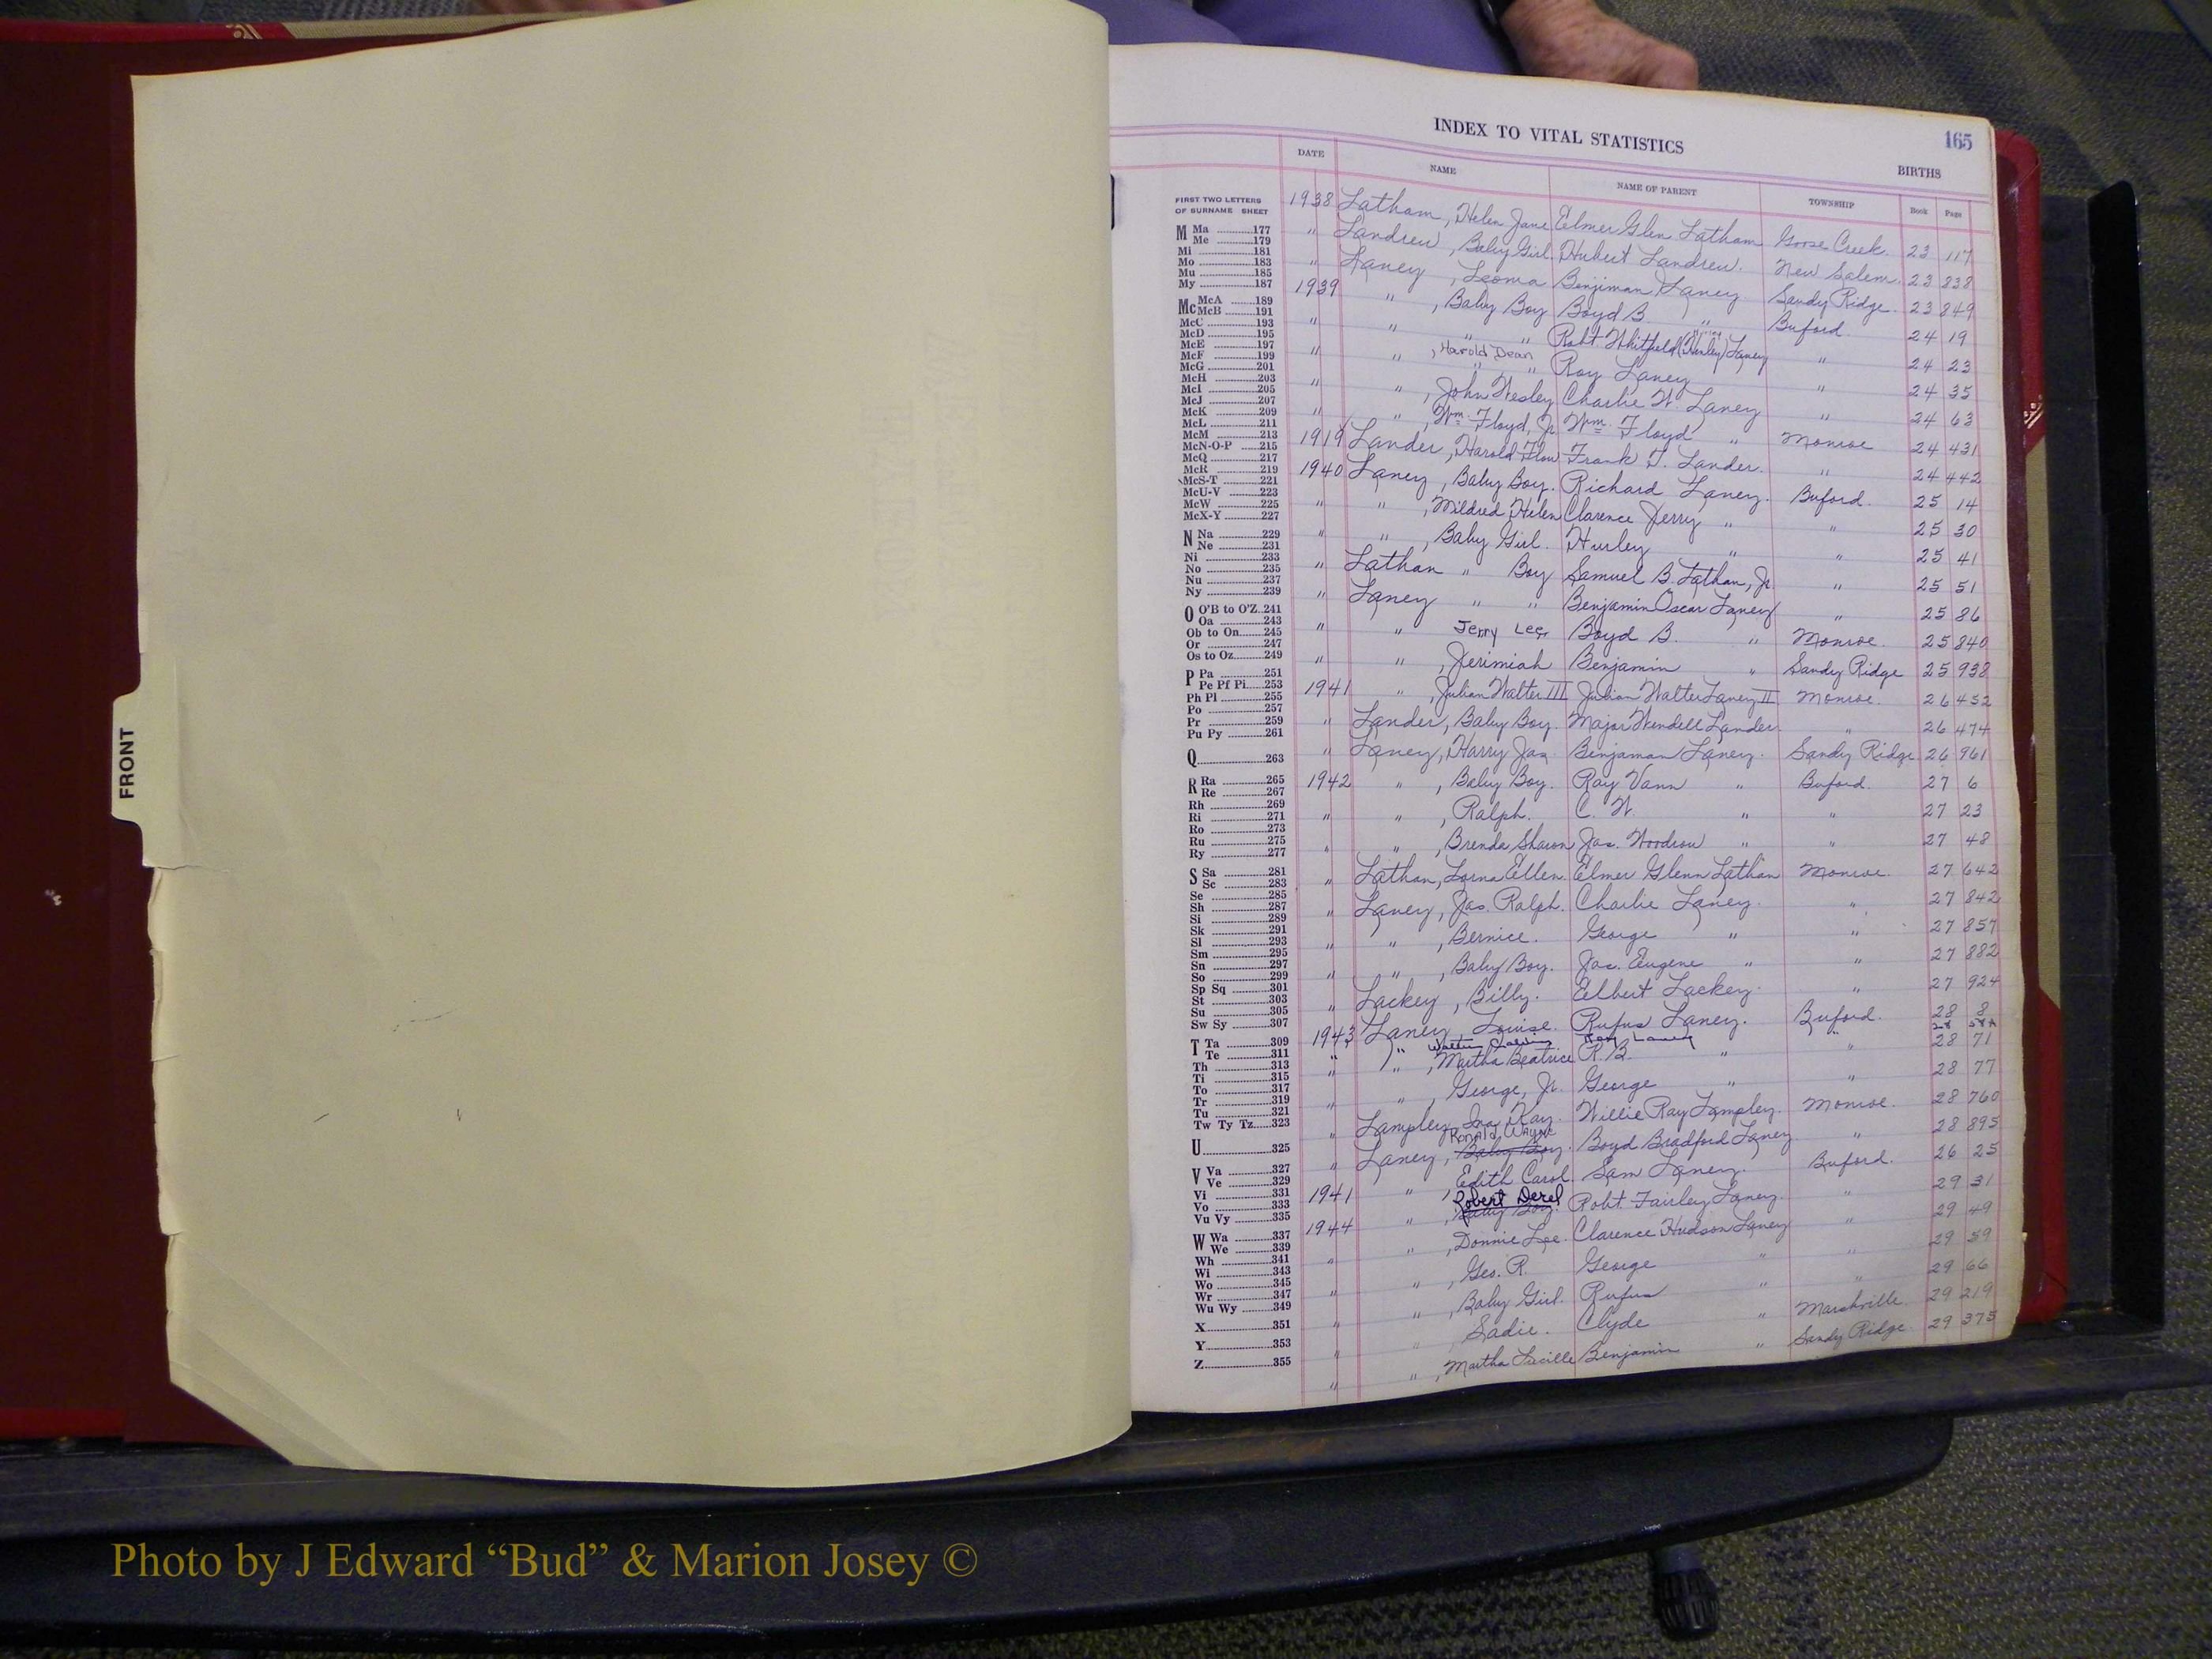 INDEX TO VITAL STATISTICS 165
BIRTHS
DATE NAME NAME OF PARENT TOWNSHIP Book Page
1938 Latham, Helen Jane Elmer Glen Latham Goose Creek. 23 117
" Landreu, Baby Girl. Hubert Landreu. New Salem. 23 838
" Laney, Leoma Benjiman Laney Sandy Ridge. 23 849
1939 " , Baby Boy Boyd B. " Buford. 24 19
" " " " Robt. Whitfield Laney " 24 23
" " , Harold Dean Roy Laney " 24 35
" " , John Wesley Charlie W. Laney " 24 63
" " , Wm. Floyd, Jr. Wm. Floyd " Monroe 24 431
1919 Lander, Harold Flow Frank F. Lander. " 24 442
1940 Laney, Baby Boy. Richard Laney. Buford. 25 14
" " , Mildred Helen Clarence Jerry " " 25 30
" " , Baby Girl. Hurley " " 25 41
" Lathan " Boy Samuel B. Lathan, Jr. " 25 51
" Laney " " Benjamin Oscar Laney " 25 86
" " Jerry Lee, Boyd B. " Monroe. 25 840
" " , Jerimiah Benjamin " Sandy Ridge 25 938
1941 " , Julian Walter III Julian Walter Laney II Monroe. 26 452
" Lander, Baby Boy. Major Wendell Lander. " 26 474
" Laney, Harry Jas. Benjaman Laney. Sandy Ridge 26 961
1942 " , Baby Boy. Ray Vann " Buford. 27 6
" " , Ralph. C. W. " " 27 23
" " , Brenda Sharon Jas. Woodrow " " 27 48
" Lathan, Lorna Ellen. Elmer Glenn Lathan Monroe. 27 642
" Laney, Jas. Ralph. Charlie Laney. " 27 842
" " , Bernice. George " " 27 857
" " , Baby Boy. Jas. Eugene " " 27 882
" Lackey, Billy. Elbert Lackey. " 27 924
1943 Laney, Louise. Rufus Laney. Buford. 28 8
Walter Calvin Roy Laney
" " , Martha Beatrice R. B. " " 28 71
" " , George, Jr. George " " 28 77
" Lampley, Ina Kay. Willie Ray Lampley. Monroe. 28 760
Ronald Wayne
" Laney, Baby Boy. Boyd Bradford Laney " 28 895
1941 " , Edith Carol. Sam Laney. Buford. 26 25
Robert Derel
1944 " , Baby Boy. Robt. Fairley Laney. " 29 31
" " , Donnie Lee. Clarence Hudson Laney " 29 49
" " , Geo. R. George " " 29 59
" " , Baby Girl. Rufus " " 29 66
" " Sadie. Clyde " Marshville. 29 219
" " , Martha Lucille Benjamin " Sandy Ridge. 29 375
FIRST TWO LETTERS
OF SURNAME SHEET
M Ma 177
Me 179
Mi 181
Mo 183
Mu 185
My 187
Mc McA 189
McB 191
McC 193
McD 195
McE 197
McF 199
McG 201
McH 203
McI 205
McJ 207
McK 209
McL 211
McM 213
McN-O-P 215
McQ 217
McR 219
McS-T 221
McU-V 223
McW 225
McX-Y 227
N Na 229
Ne 231
Ni 233
No 235
Nu 237
Ny 239
O O'B to O'Z 241
Oa 243
Ob to On 245
Or 247
Os to Oz 249
P Pa 251
Pe Pf Pi 253
Ph Pl 255
Po 257
Pr 259
Pu Py 261
Q 263
R Ra 265
Re 267
Rh 269
Ri 271
Ro 273
Ru 275
Ry 277
S Sa 281
Sc 283
Se 285
Sh 287
Si 289
Sk 291
Sl 293
Sm 295
Sn 297
So 299
Sp Sq 301
St 303
Su 305
Sw Sy 307
T Ta 309
Te 311
Th 313
Ti 315
To 317
Tr 319
Tu 321
Tw Ty Tz 323
U 325
V Va 327
Ve 329
Vi 331
Vo 333
Vu Vy 335
W Wa 337
We 339
Wh 341
Wi 343
Wo 345
Wr 347
Wu Wy 349
X 351
Y 353
Z 355
FRONT
Photo by J Edward “Bud” & Marion Josey ©